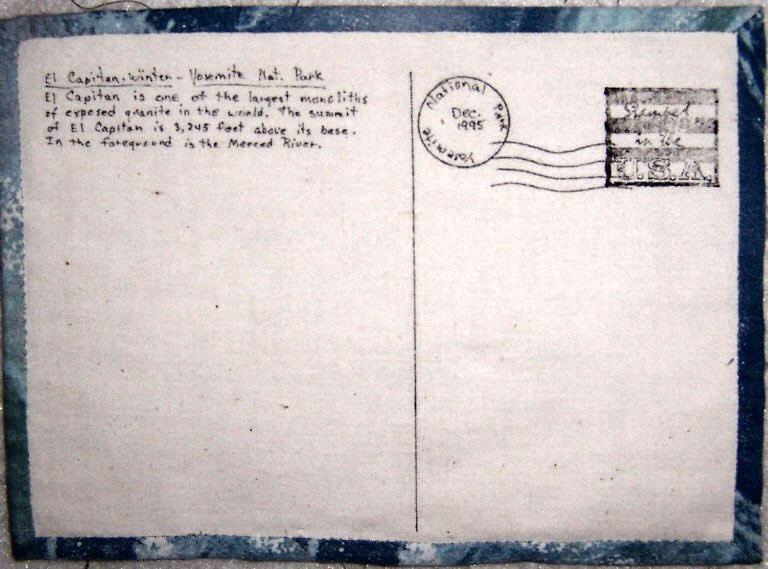 El Capitan-Winter - Yosemite Nat. Park
El Capitan is one of the largest monoliths
of exposed granite in the world. The summit
of El Capitan is 3,245 feet above its base.
In the foreground is the Merced River.
Yosemite National Park
Dec.
1995
Stamped
in the
U.S.A.